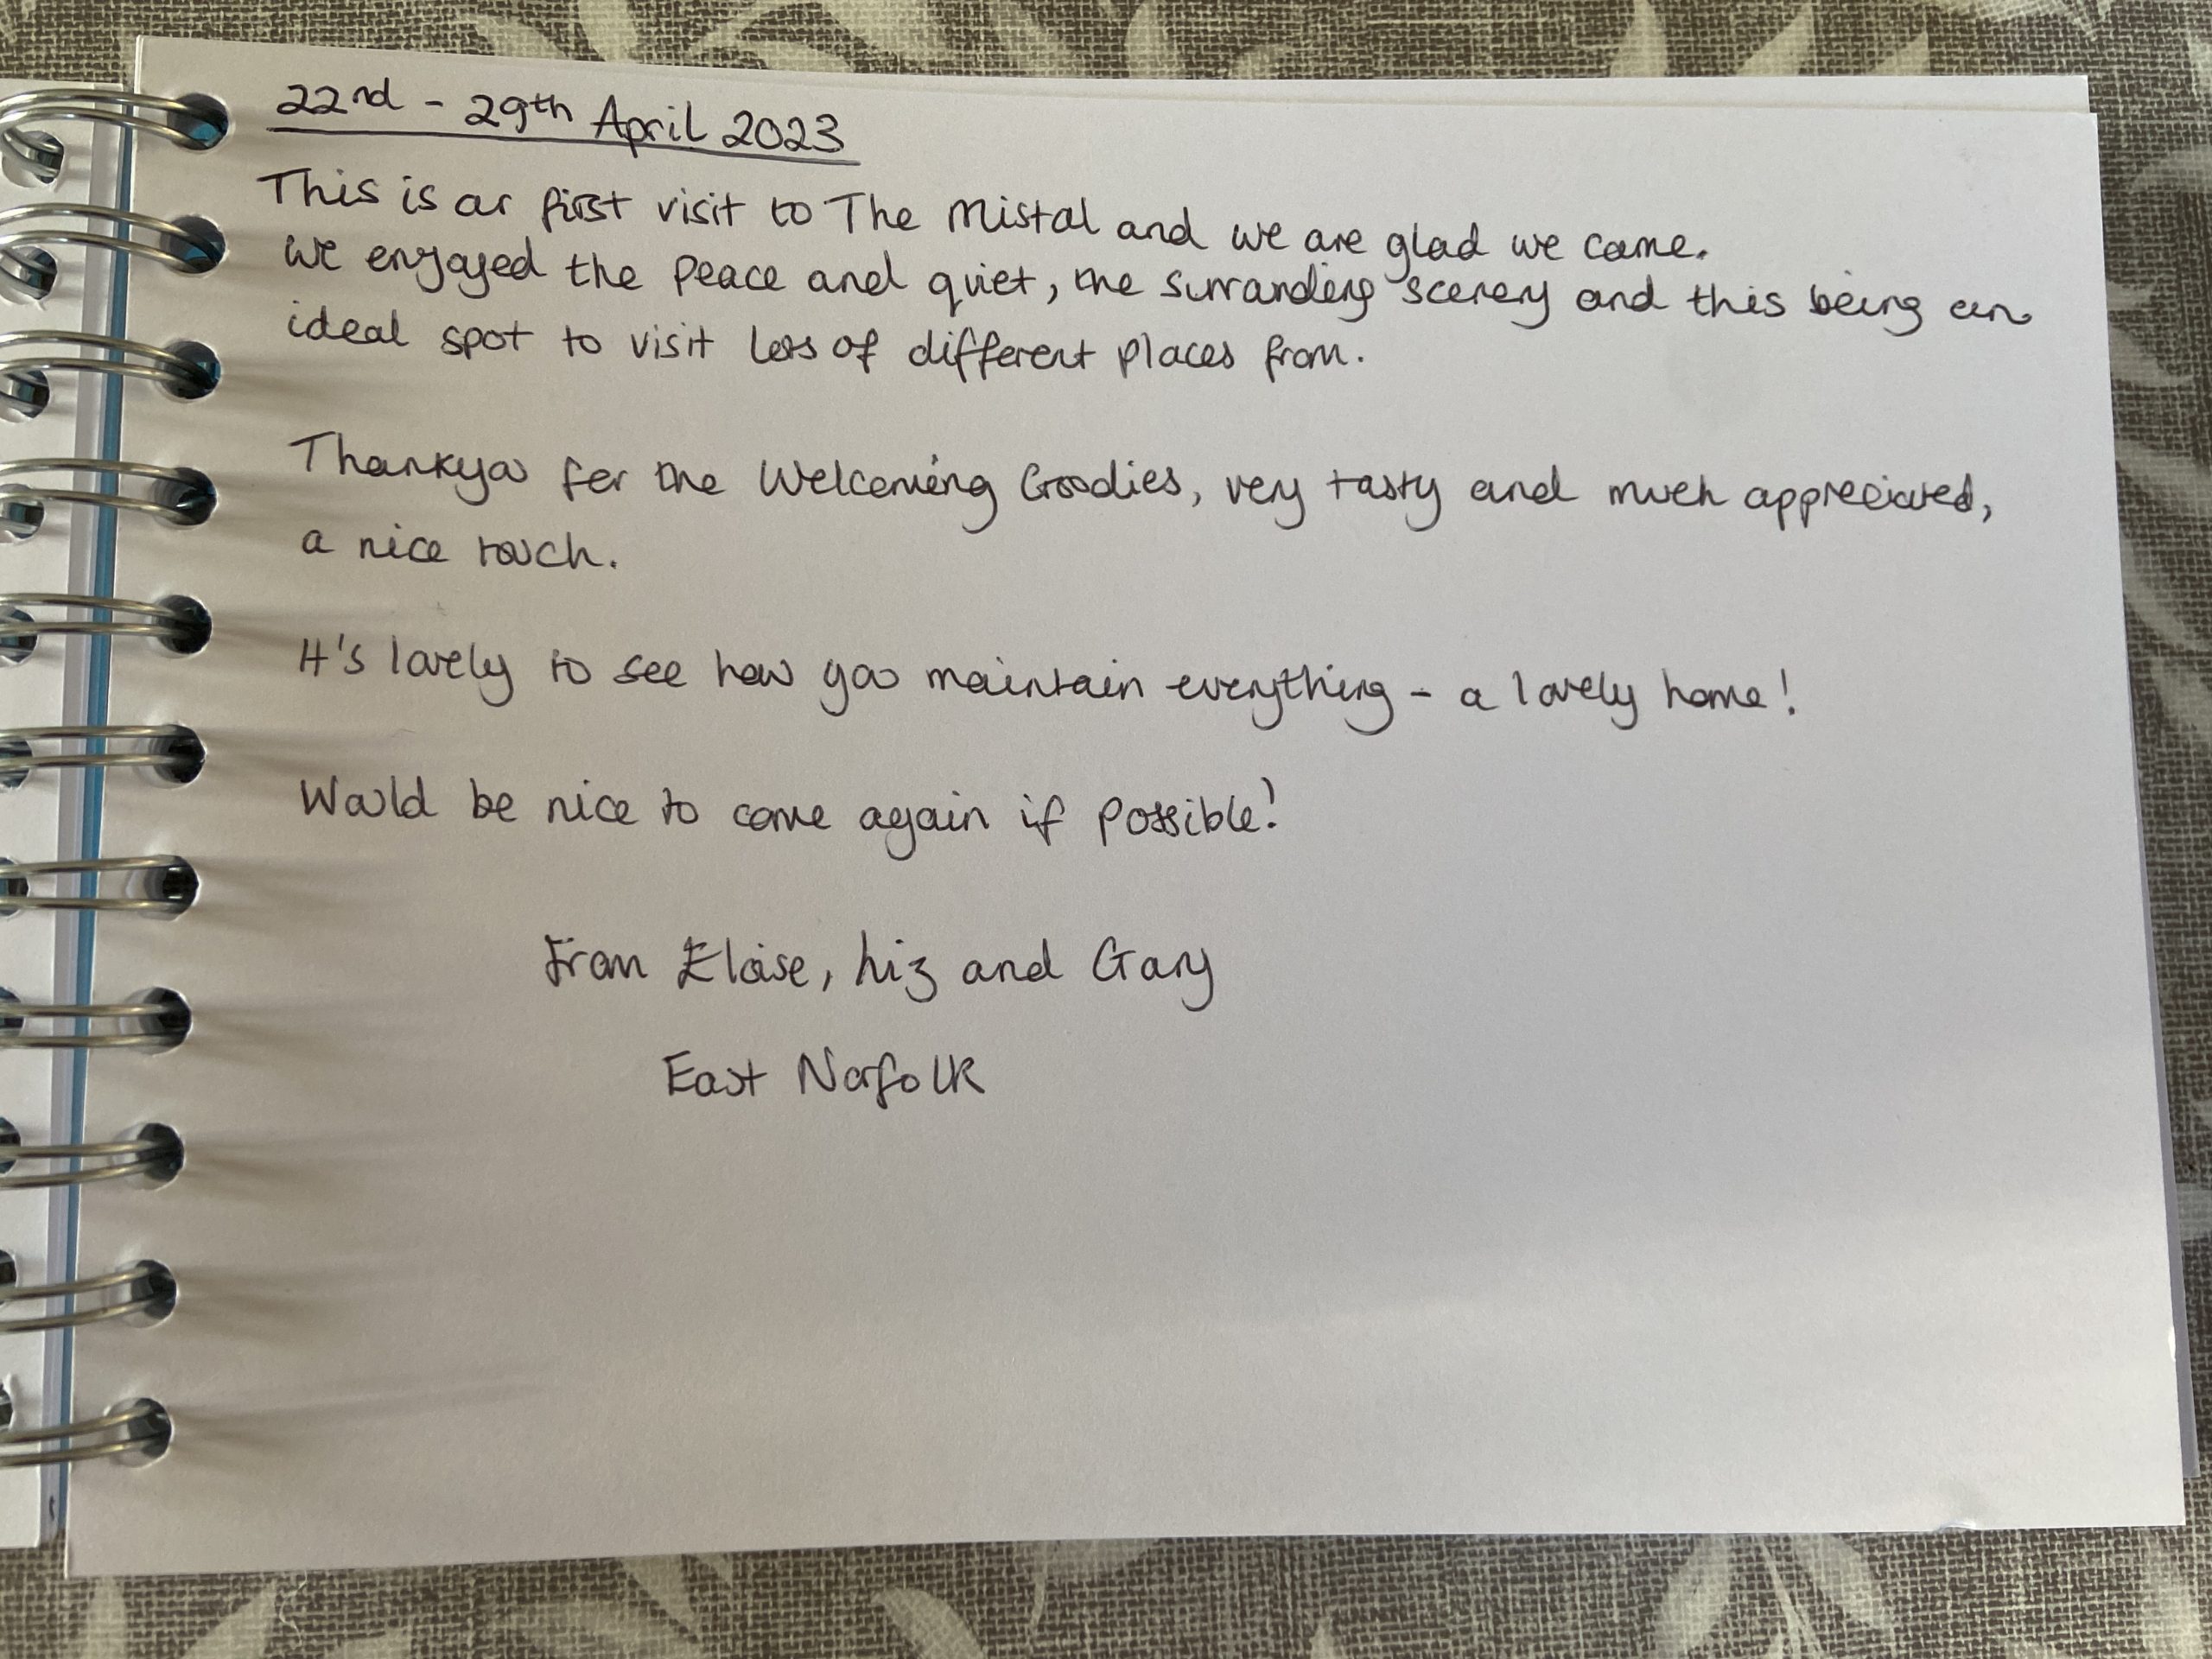 22nd - 29th April 2023
This is our first visit to The Mistal and we are glad we came.
We enjoyed the peace and quiet, the surrounding scenery and this being an
ideal spot to visit lots of different places from.
Thankyou for the Welcoming Goodies, very tasty and much appreciated,
a nice touch.
It's lovely to see how you maintain everything - a lovely home!
Would be nice to come again if possible!
From Eloise, Liz and Gary
East Norfolk